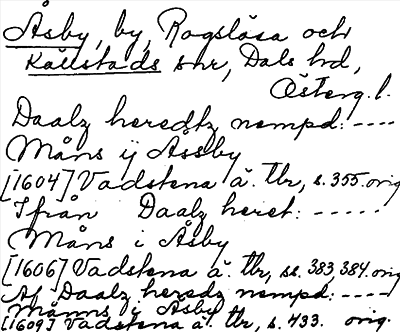 Åsby, by, Rogslösa och
Källstads snr, Dals hd,
Österg. l.
Daalz heredtz nempd: ----
Måns ij Åssby
[1604] Vadstena ä. tbr, s. 355. orig
Ifrån Daalz heret: -----
Måns i Åsby
[1606] Vadstena ä. tbr, ss. 383, 384. orig
Af Daalz heredz nempd: ----
Månns ij Åsby
[1609] Vadstena ä. tbr, s. 433. orig.